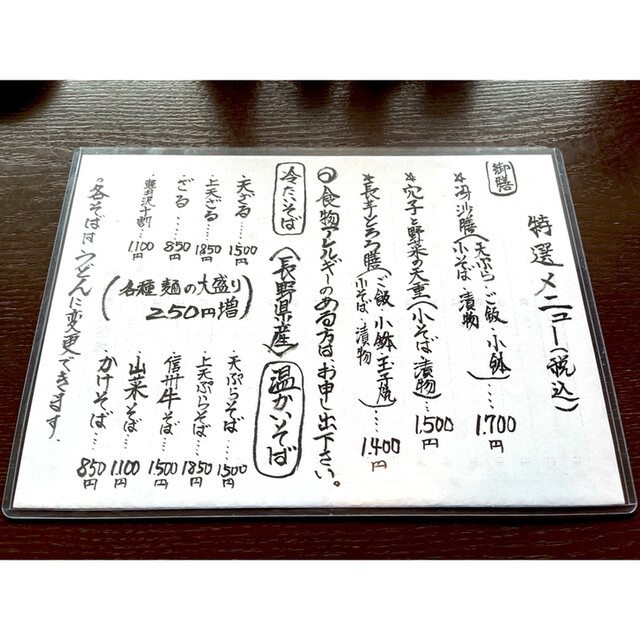 特選メニュー(税込)
御膳
(天ぷら・ご飯・小鉢
小そば・漬物)‥‥1.700円
☆穴子と野菜の天重(小そば・漬物)‥1.500円
☆長芋とろろ膳(ご飯・小鉢・玉子焼
小そば・漬物)‥‥1.400円
○食物アレルギーのある方は、お申し出下さい。
冷たいそば
(長野県産)
温かいそば
天ざる‥‥1500円
上天ざる‥‥1850円
ざる‥‥850円
軽井沢十割‥‥1100円
(各種麺の大盛り
250円増)
天ぷらそば‥‥1500円
上天ぷらそば‥‥1850円
信州牛そば‥‥1500円
山菜そば‥‥1100円
かけそば‥‥850円
○各そばは、うどんに変更できます.